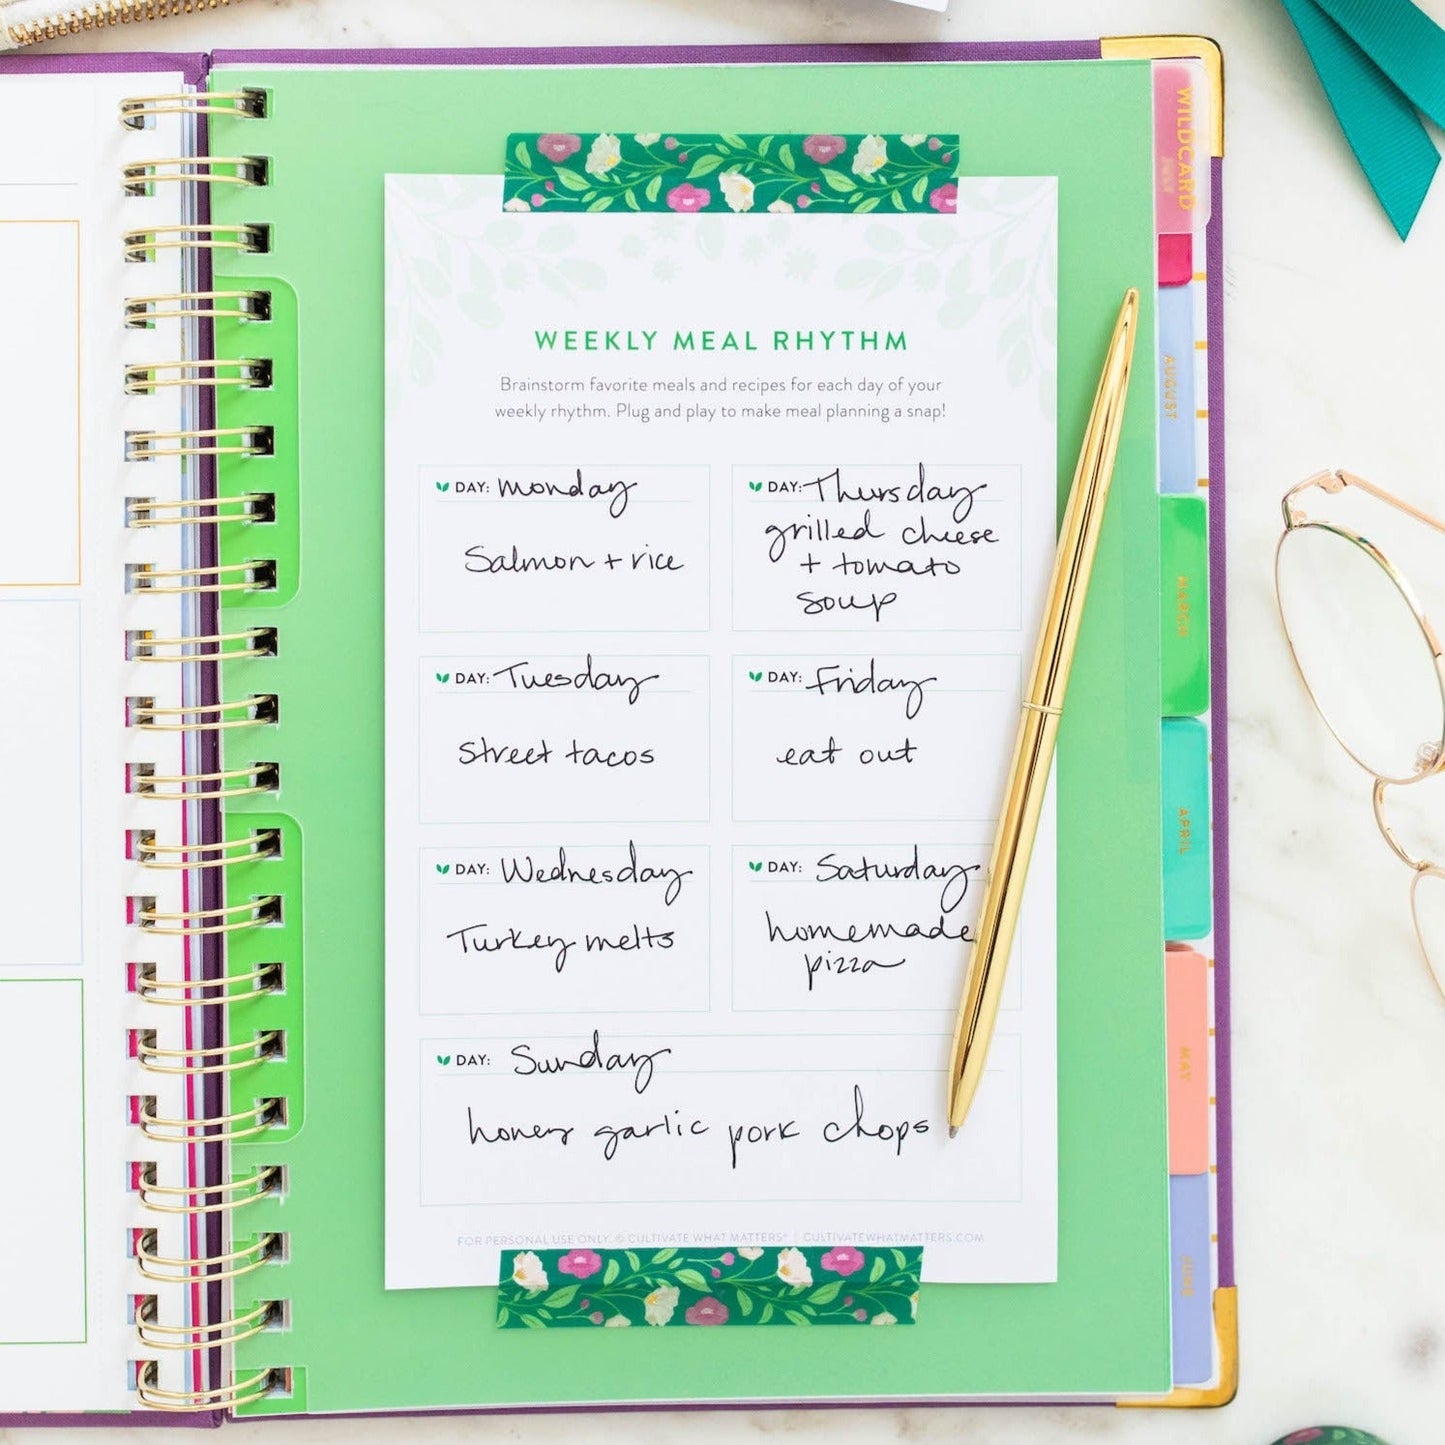 WEEKLY MEAL RHYTHM
Brainstorm favorite meals and recipes for each day of your
weekly rhythm. Plug and play to make meal planning a snap!
DAY: Monday
Salmon + rice
DAY: Tuesday
Street tacos
DAY: Wednesday
Turkey melts
DAY: Thursday
grilled cheese
+ tomato
soup
DAY: Friday
eat out
DAY: Saturday
homemade
pizza
DAY: Sunday
honey garlic pork chops
FOR PERSONAL USE ONLY. © CULTIVATE WHAT MATTERS® | CULTIVATEWHATMATTERS.COM
WILDCARD
AUGUST
MARCH
APRIL
MAY
JUNE